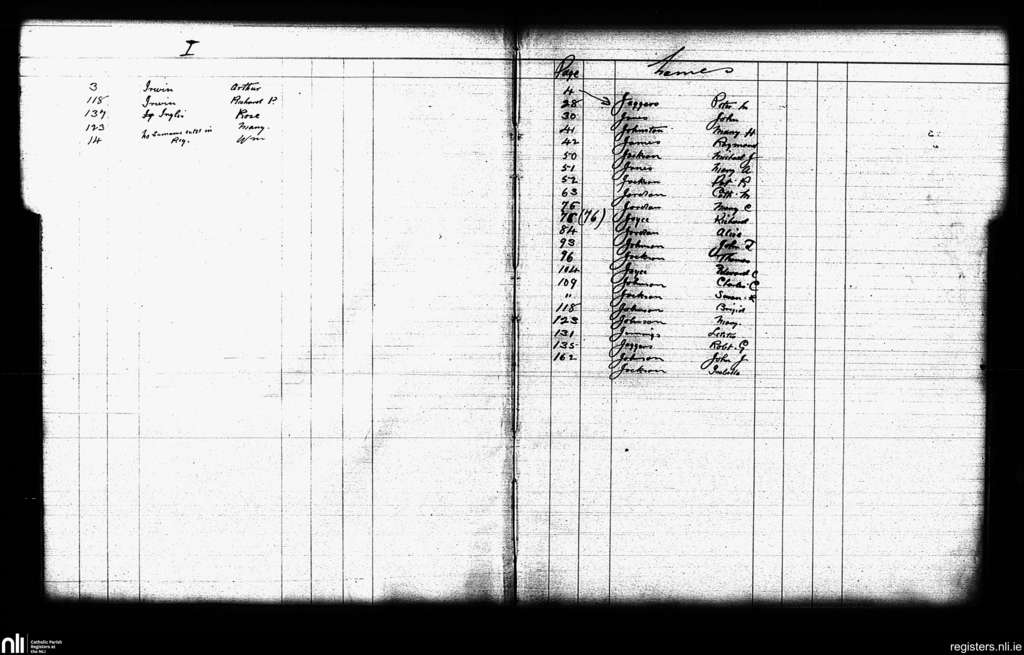 I
3 Irwin Arthur
118 Irwin Richard P.
137 Inglis Rose
123 No Surname entd in Reg. Mary.
14 Wm
Page Names
4
28 Jaggers Peter
30 Jones John
41 Johnston Mary H
42 James Raymond
50 Jackson Michael J
51 Jones Mary A
52 Jackson Pat. R
63 Jordan Cath. M
75 Jordan Mary C
75 (76) Joyce Richard
84 Jordan Alice
93 Johnson John
96 Jackson Thomas
104 Joyce Edward C
109 Johnson Charles C
" Jackson Susan
118 Johnson Brigid
123 Johnson Mary.
131 Jennings Letitia
135 Jaggers Robt. G
162 Johnson John J.
Jackson Isabella
nli Catholic Parish Registers at the NLI
registers.nli.ie